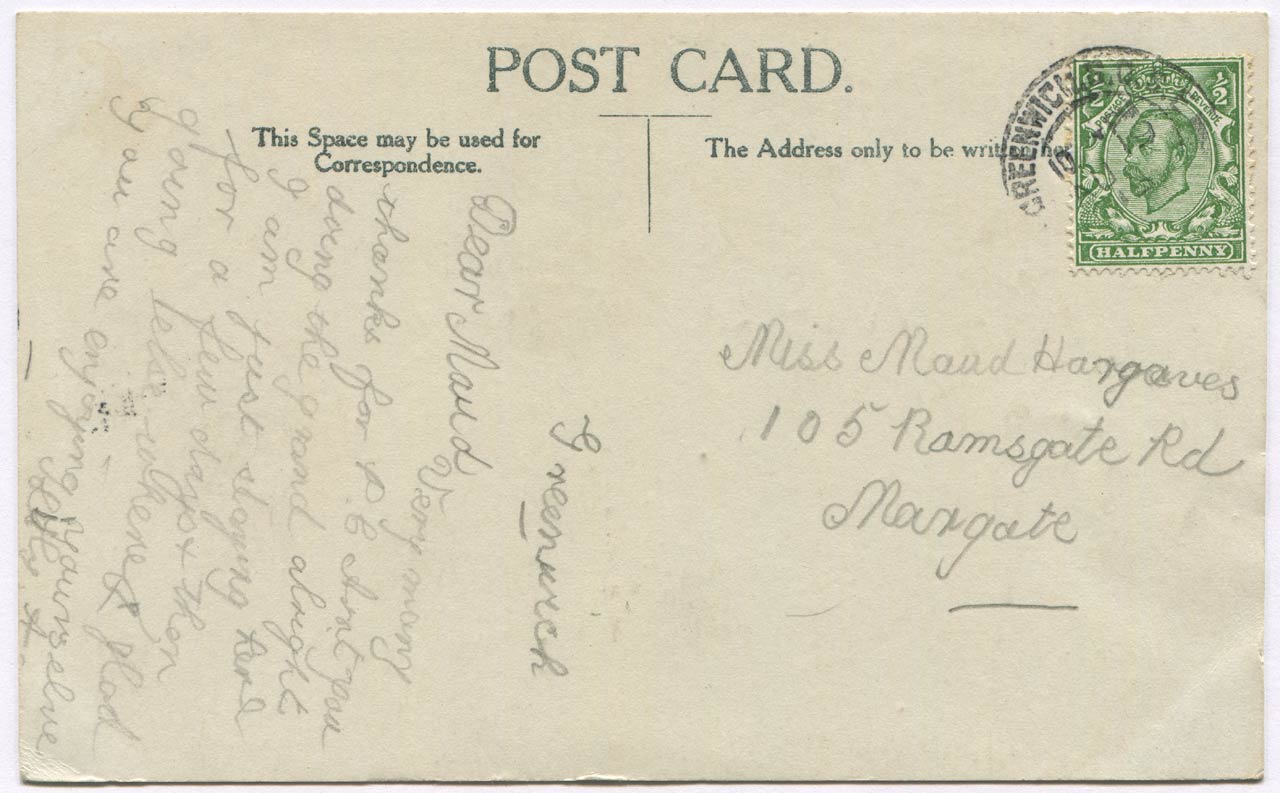 POST CARD.
This Space may be used for
Correspondence.
The Address only to be writ
GREENWICH
POSTAGE REVENUE
½ ½
HALFPENNY
Miss Maud Hargaves
105 Ramsgate Rd
Margate
Greenwich
Dear Maud
Very many
thanks for P C Aint you
doing the grand alright
I am just staying here
for a few days & then
going else where & glad
you are enjoying yourselve